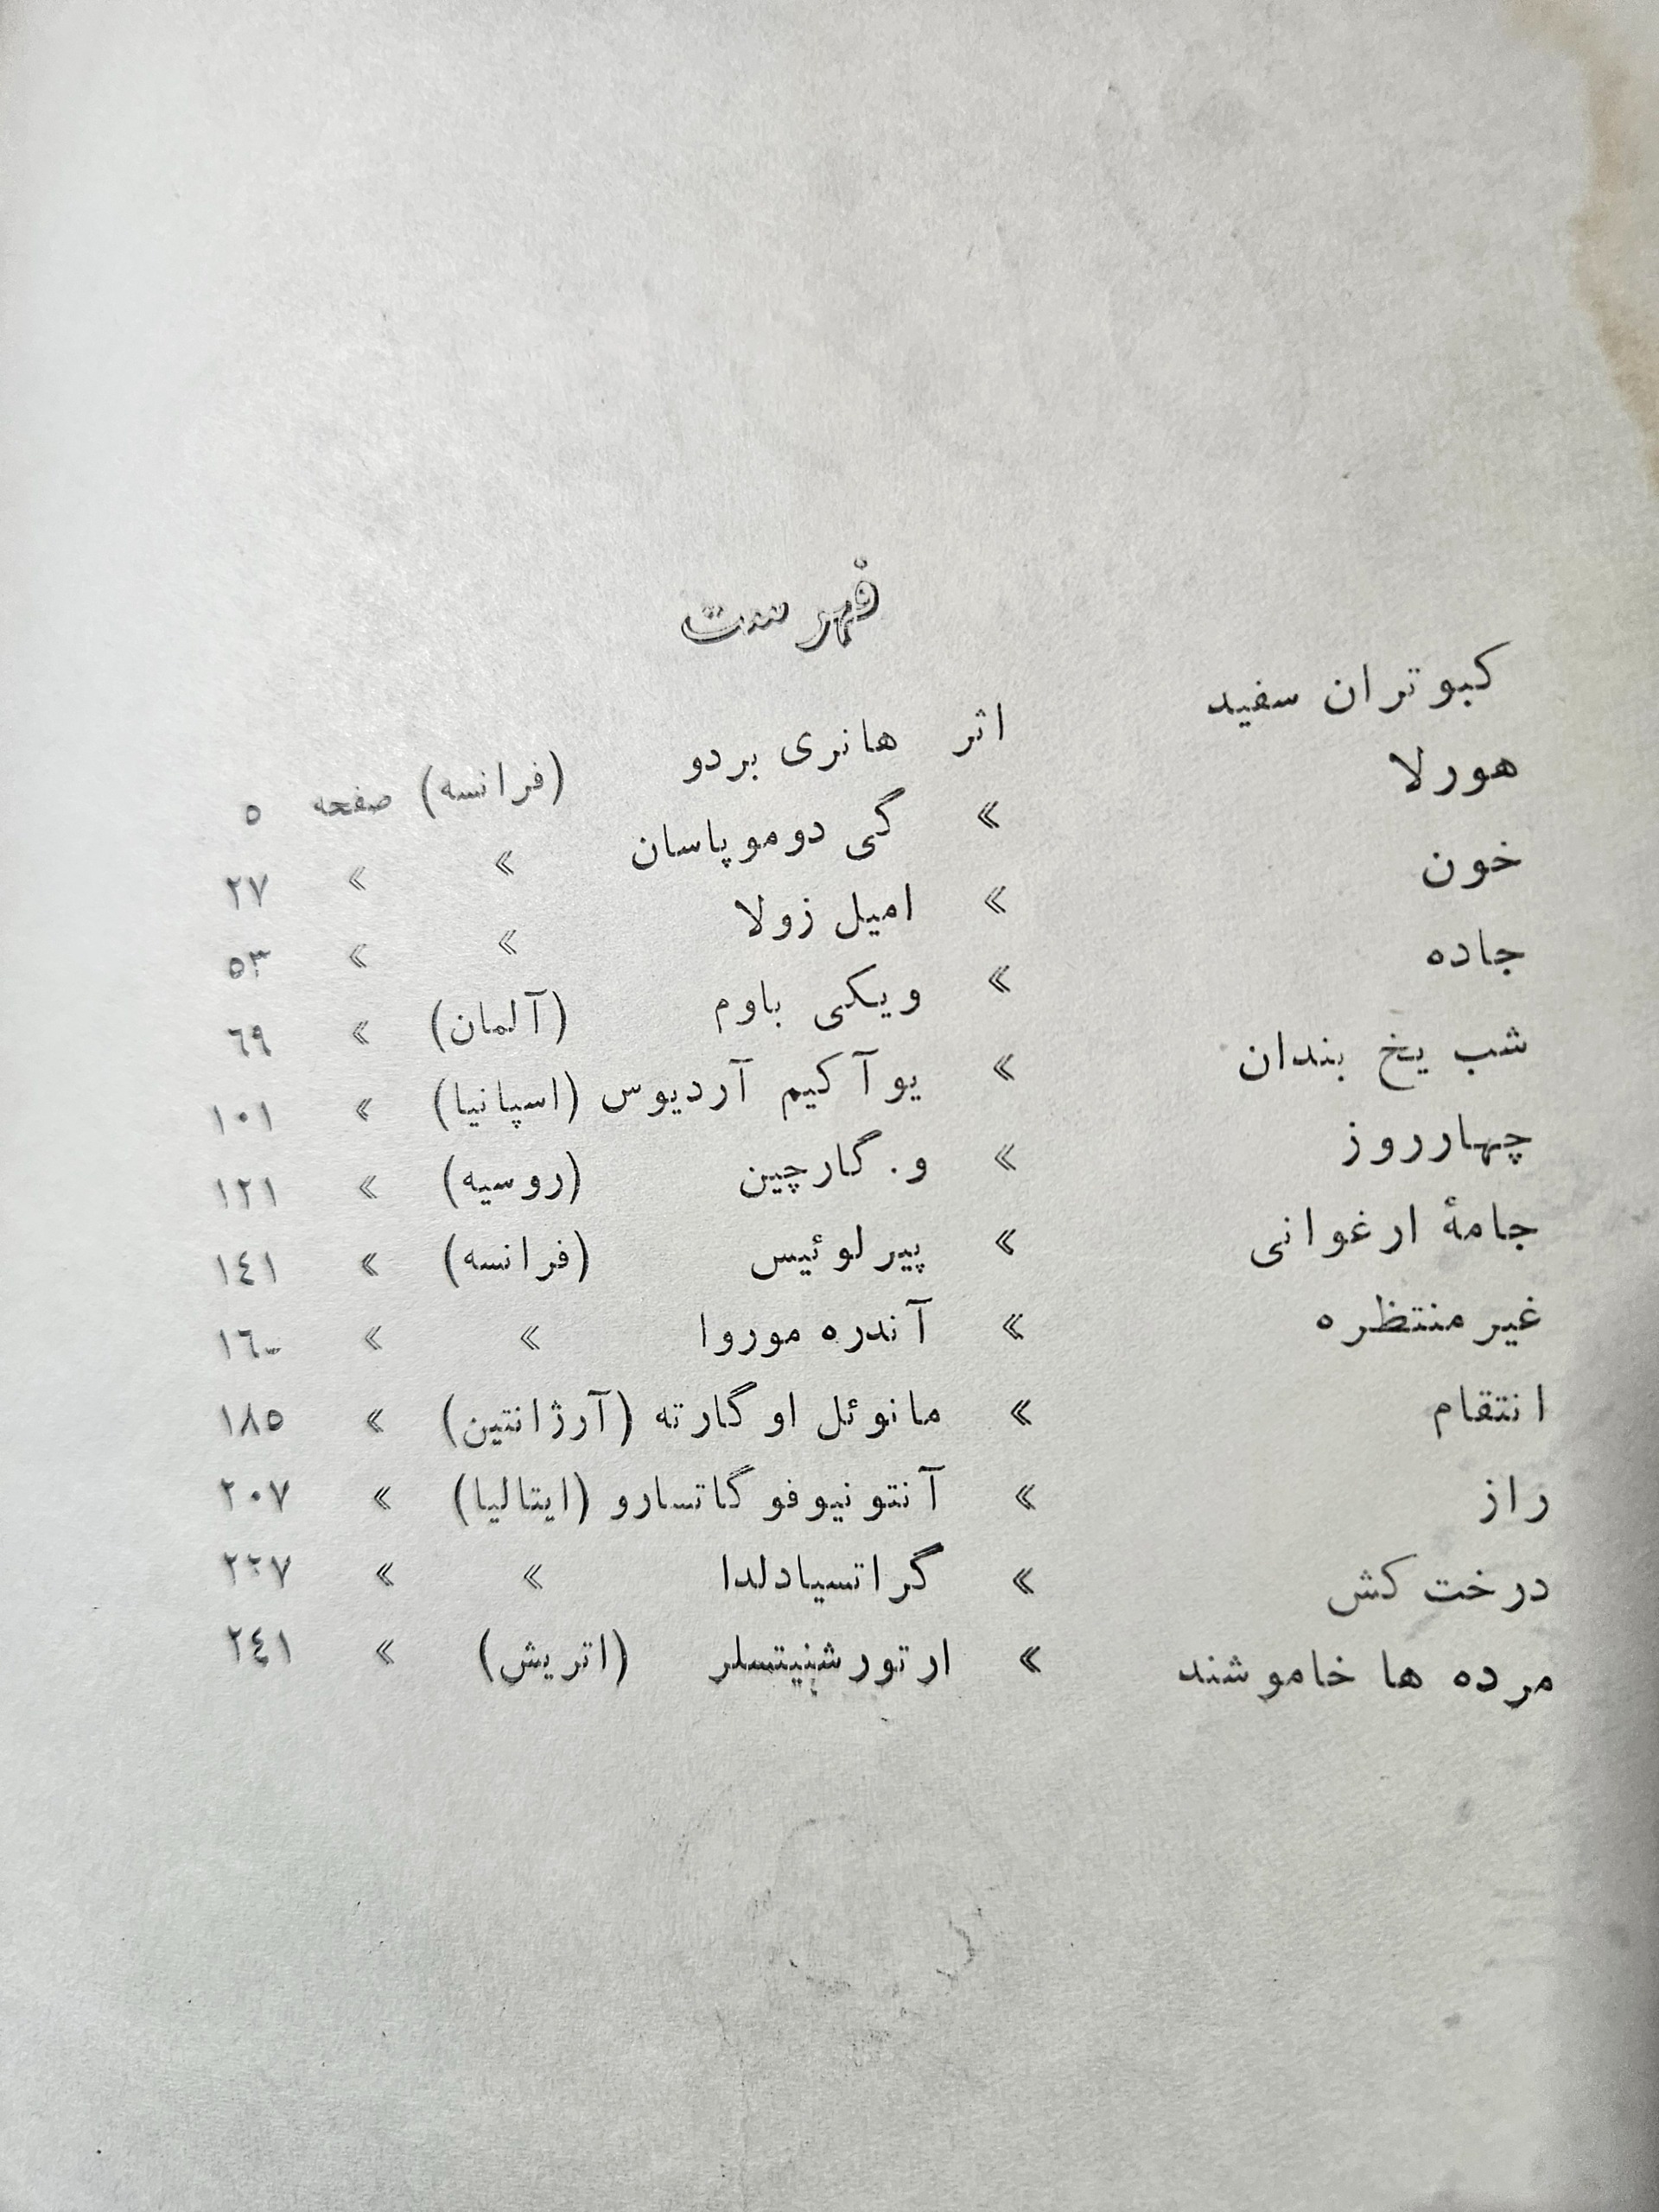 فهرست
کبوتران سفید اثر هانری بردو (فرانسه) صفحه ٥
هورلا » گی دوموپاسان » » ٢٧
خون » امیل زولا » » ٥٣
جاده » ویکی باوم (آلمان) » ٦٩
شب یخ بندان » یوآکیم آردیوس (اسپانیا) » ١٠١
چهارروز » و. گارچین (روسیه) » ١٢١
جامهٔ ارغوانی » پیرلوئیس (فرانسه) » ١٤١
غیرمنتظره » آندره موروا » »
انتقام » مانوئل اوگارته (آرژانتین) » ١٨٥
راز » آنتونیوفوگاتسارو (ایتالیا) » ٢٠٧
درخت کش » گراتسیادلدا » » ٢٢٧
مرده ها خاموشند » ارتورشنیتسلر (اتریش) » ٢٤١